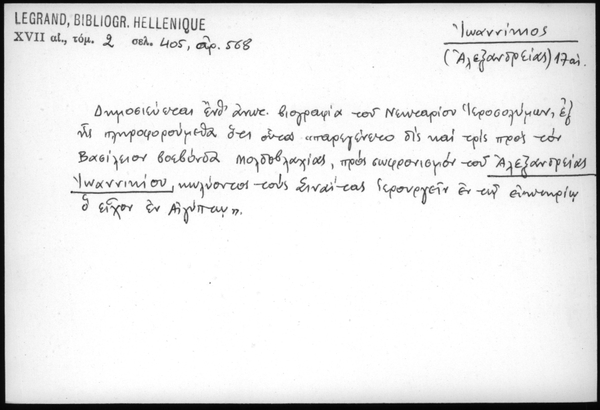 LEGRAND, BIBLIOGR. HELLENIQUE
XVII αἰ., τόμ. 2 σελ. 405, ἀρ. 568
Ἰωαννίκιος
(Ἀλεξανδρείας) 17 αἰ.
Δημοσιεύεται ἔνθ' ἀνωτ. βιογραφία τοῦ Νεκταρίου Ἱεροσολύμων, ἐξ
ἧς πληροφορούμεθα ὅτι οὗτος παρεγένετο δὶς καὶ τρὶς πρὸς τὸν
Βασίλειον βοεβόνδα Μολδοβλαχίας, πρὸς σωφρονισμὸν τοῦ Ἀλεξανδρείας
Ἰωαννικίου, κωλύοντος τοὺς Σιναΐτας ἱερουργεῖν ἐν τῷ εὐκτηρίῳ
ὃ εἶχον ἐν Αἰγύπτῳ».